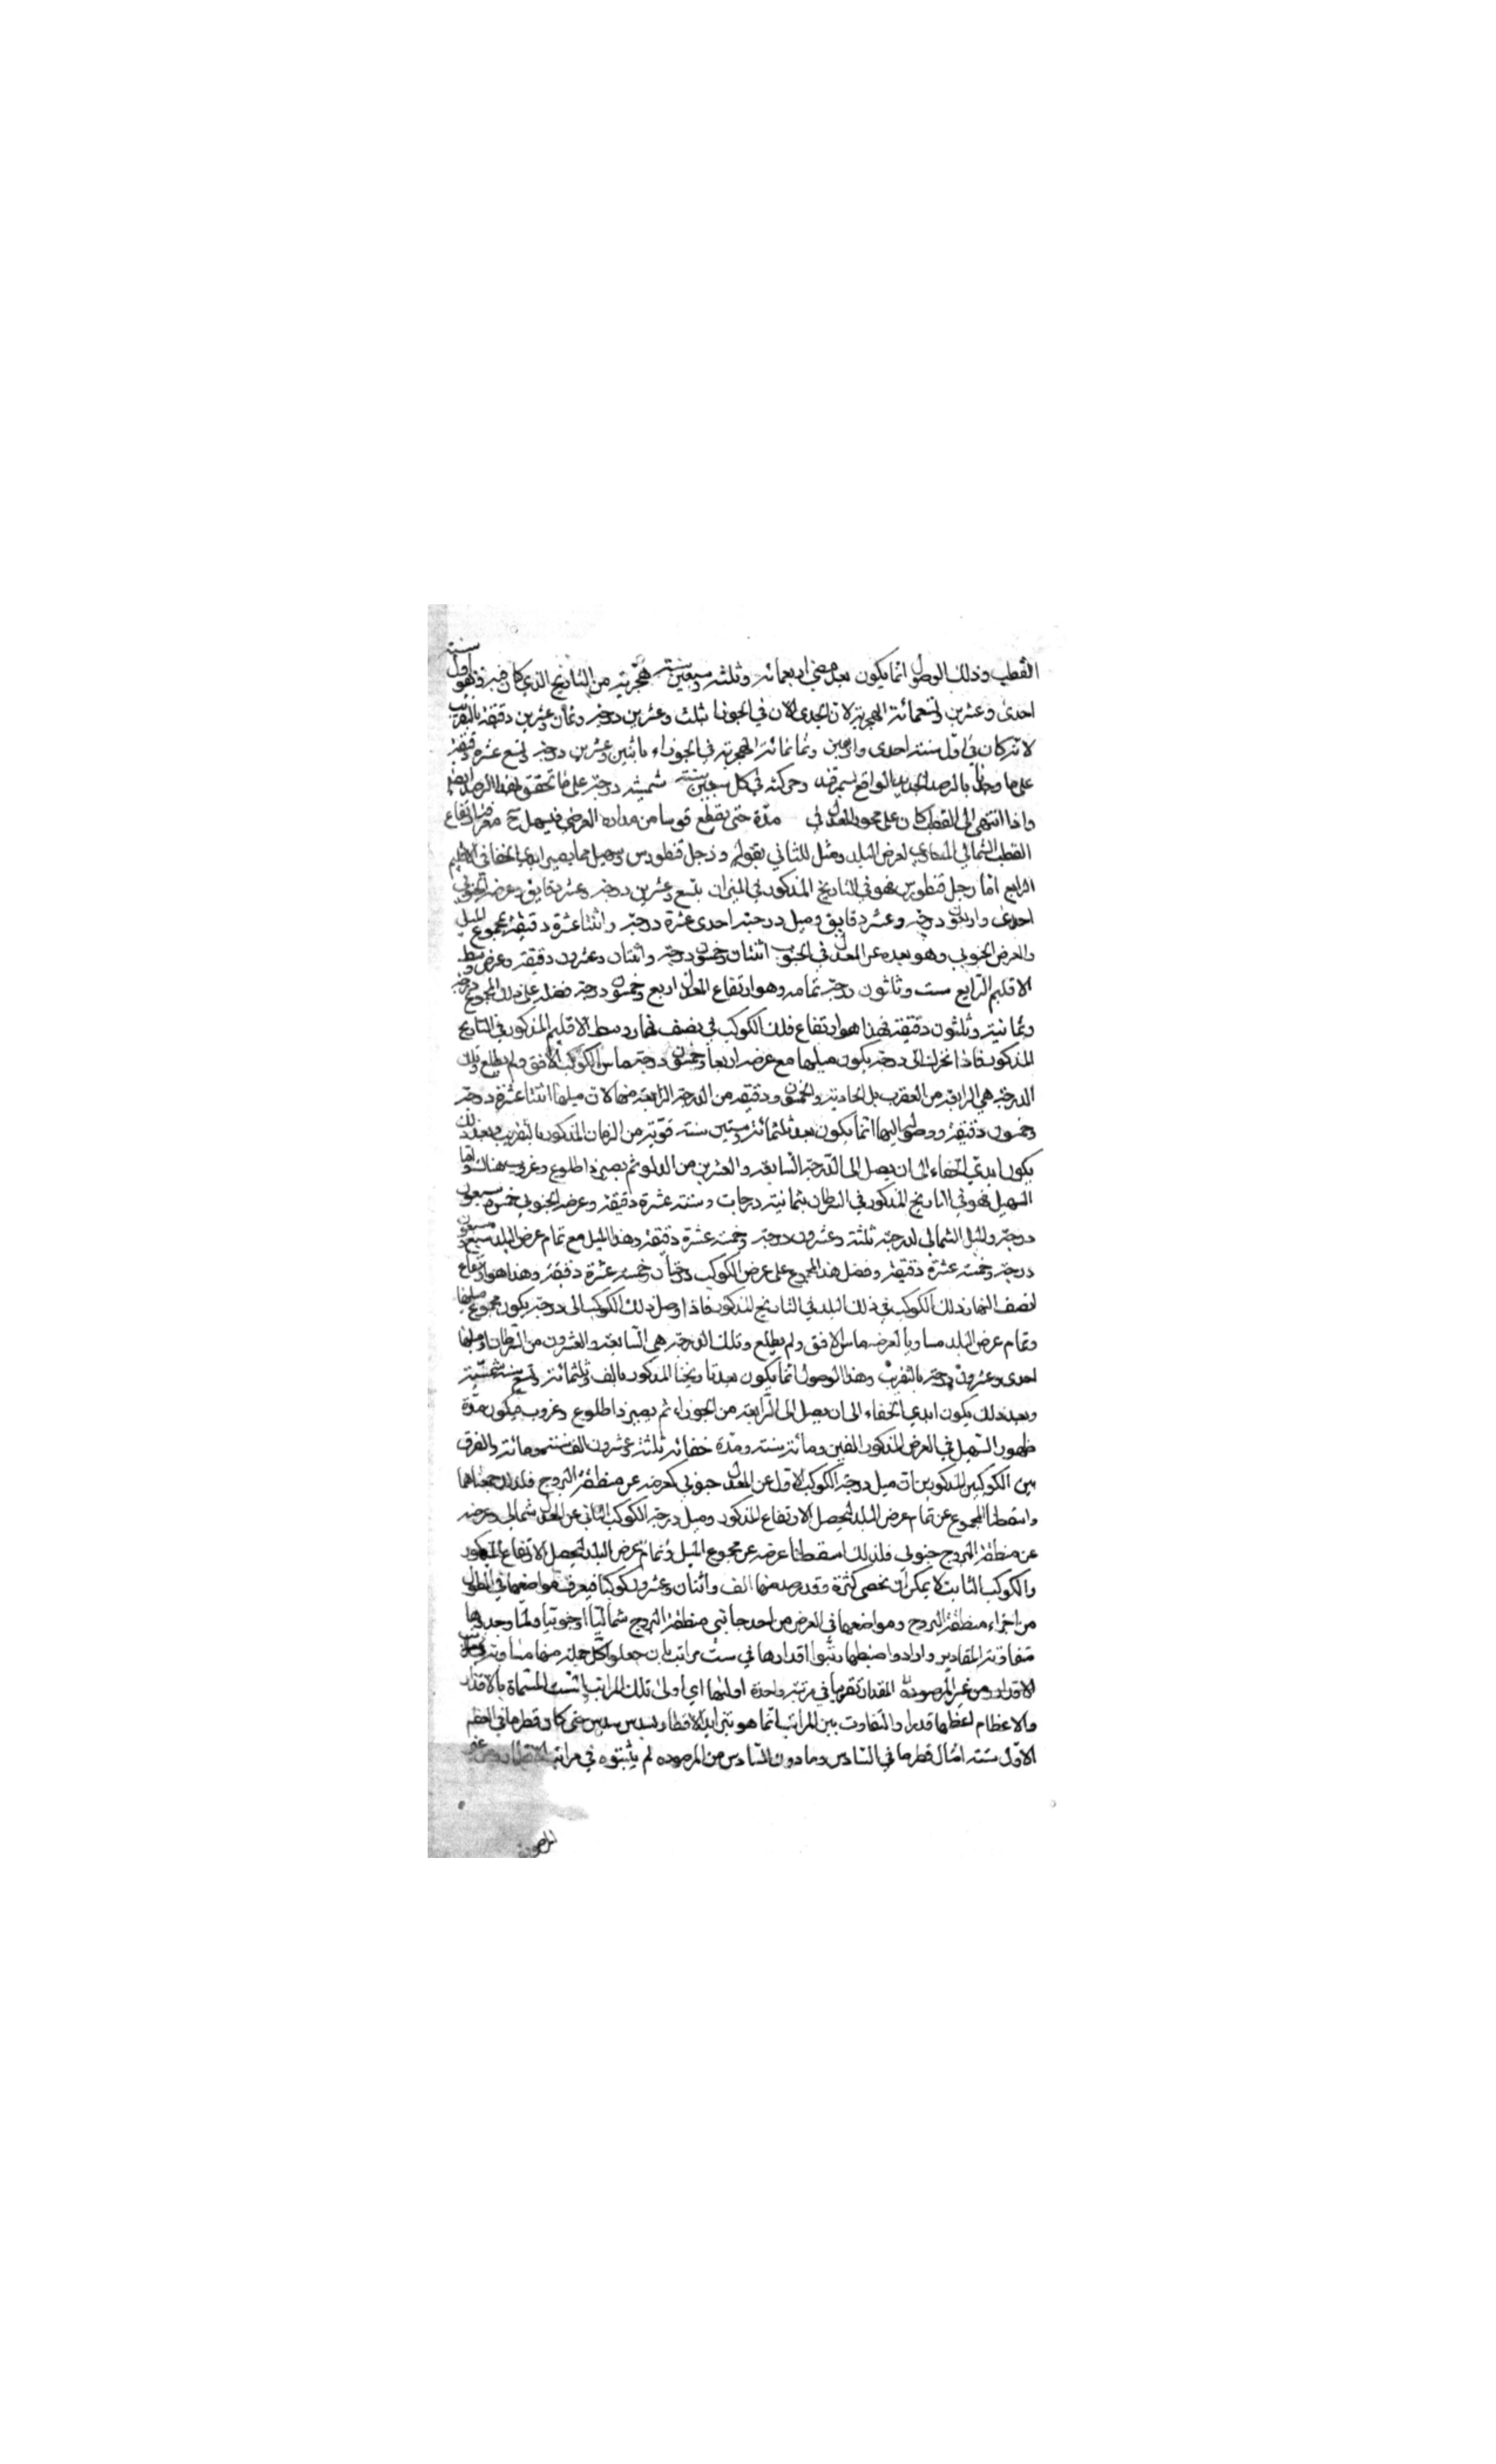 القطب وذلك الوصول انما يكون بعد مضي اربعمائة وثلثة وسبعين سنة هجرية من التاريخ الذي كان فيه وهو اول سنة
احدى وعشرين وتسعمائة الهجرية لان الجدي الان في الجوزا بثلث وعشرين درجة وثمان وعشرين دقيقة بالتقريب
لانه كان في اول سنة احدى واربعين وثمانمائة الهجرية في الجوزاء باثنين وعشرين درجة وتسع عشرة دقيقة
على ما وجدنا بالرصد الجديد الواقع بسمرقند وحركته في كل سبعين سنة شمسية درجة على ما تحقق بهذا الرصد ايضا
واذا انتهى الى القطب كان على محور المعدل في مدة حتى يقطع قوسا من مداره العرضي ارتفاع
القطب الشمالي المساوي لعرض البلد ومثل للثاني بقوله ورجل قنطورس وسهيل مما يصير ابدي الخفا في الاقليم
الرابع اما رجل قنطورس فهو في التاريخ المذكور في الميزان بتسع وعشرين درجة وعشر دقايق وعرضه الجنوبي
احدى واربعون درجة وعشر دقايق وميل درجته احدى عشرة درجة واثنتا عشرة دقيقة مجموع الميل
والعرض الجنوبي وهو بعده عن المعدل في الجنوب اثنتان وخمسون درجة واثنتان وعشرون دقيقة وعرض وسط
الاقليم الرابع ست وثلثون درجة تمامه وهو ارتفاع المعدل اربع وخمسون درجة فضله على ذلك المجموع درجة
وثمانية وثلثون دقيقة فهذا هو ارتفاع ذلك الكوكب في نصف نهار وسط الاقليم المذكور في التاريخ
المذكور فاذا تحرك الى درجة يكون ميلها مع عرضه اربعا وخمسون درجة ماس الكوكب الافق ولم يطلع وتلك
الدرجة هي الرابعة من العقرب بل الحادية والخمسون دقيقة من الدرجة الرابعة منها لان ميلها اثنتا عشرة درجة
وخمسون دقيقة ووصوله اليها انما يكون بعد ثلثمائة وستين سنة قمرية من الزمان المذكور بالتقريب وبعد ذلك
يكون ابدي الخفاء الى ان يصل الى الدرجة السابعة والعشرين من الدلو ثم يصير ذا طلوع وغروب هناك واما
السهيل فهو في التاريخ المذكور في السرطان بثمانية درجات وستة عشرة دقيقة وعرضه الجنوبي خمس وسبعون
درجة والميل الشمالي لدرجته ثلثة وعشرون درجة وخمسة عشرة دقيقة وهذا الميل مع تمام عرض البلد سبع وسبعون
درجة وخمسة عشرة دقيقة وفضل هذا المجموع على عرض الكوكب درجتان وخمسة عشرة دقيقة وهذا هو ارتفاع
نصف النهار ذلك الكوكب في ذلك البلد في التاريخ المذكور فاذا وصل ذلك الكوكب الى درجة يكون مجموع ميلها
وتمام عرض البلد مساويا لعرضه ماس الافق ولم يطلع وتلك الدرجة هي السابعة والعشرون من السرطان اذ ميلها
احدى وعشرون درجة بالتقريب وهذا الوصول انما يكون بعد تاريخنا المذكور بالف وثلثمائة وتسع سنة شمسية
وبعد ذلك يكون ابدي الخفاء الى ان يصل الى الرابعة من الجوزاء ثم يصير ذا طلوع وغروب فيكون مدة
ظهور السهيل في العرض المذكور الفين ومائة سنة ومدة خفائه ثلثة وعشرون الف سنة ومائة والفرق
بين الكوكبين المذكورين ان ميل درجة الكوكب الاول عن المعدل جنوبي كعرضه عن منطقة البروج فلذلك جمعناهما
واسقطنا المجموع عن تمام عرض البلد ليحصل الارتفاع المذكور وميل درجة الكوكب الثاني عن المعدل شمالي وعرضه
عن منطقة البروج جنوبي فلذلك اسقطنا عرضه عن مجموع الميل وتمام عرض البلد ليحصل الارتفاع المذكور
والكوكب الثابت لا يمكن ان يحصى كثرة وقد رصد منها الف واثنان وعشرون كوكبا فيعرف مواضعها في الطول
من اجزاء منطقة البروج ومواضعها في العرض من احد جانبي منطقة البروج شماليا او جنوبيا ولما وجدوها
متفاوتة المقادير وارادوا ضبطها رتبوا اقدارها في ست مراتب بان جعلوا كل جملة منها متساوية
الاقدار من غير المرصودة المقدار تقريبا في مرتبة واحدة اوليها اي اولى تلك المراتب الست المسماة بالاقدار
والاعظام اعظمها قدرا والتفاوت بين المراتب انما هو بتزايد الاقطار بسدس سدس حتى كان قطر ما في العظم
الاول ستة امثال قطر ما في السادس وما دون السادس من المرصودة لم يثبتوه في مراتب
المرصودة